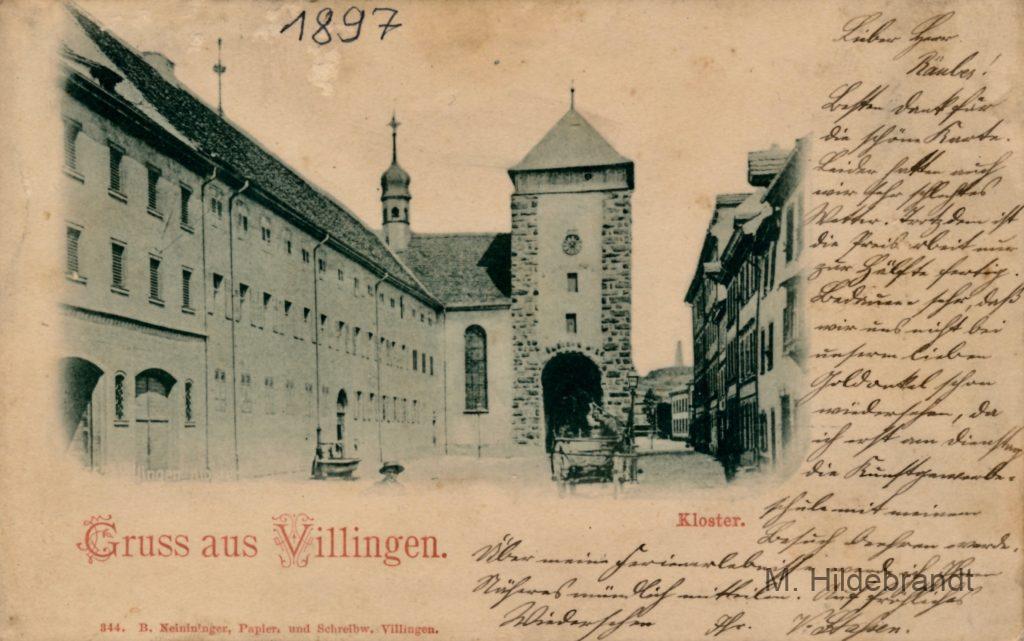 1897
Lieber Herr
Räuber!
Besten Dank für
die schöne Karte.
Leider hatten auch
wir sehr schlechtes
Wetter. Trotzdem ist
die Preisarbeit nur
zur Hälfte fertig.
Bedauere sehr, daß
wir uns nicht bei
unserm lieben
Goldonkel schon
wiedersehen, da
ich erst am Dienstag
die Kunstgewerbe-
schule mit meinem
Besuch beehren werde.
Über meine Ferienerlebnisse werde ich Ihnen
Näheres mündlich mitteilen. Auf fröhliches
Wiedersehen Ihr.
Kloster.
Gruss aus Villingen.
M. Hildebrandt
344. B. Neininger, Papier. und Schreibw. Villingen.